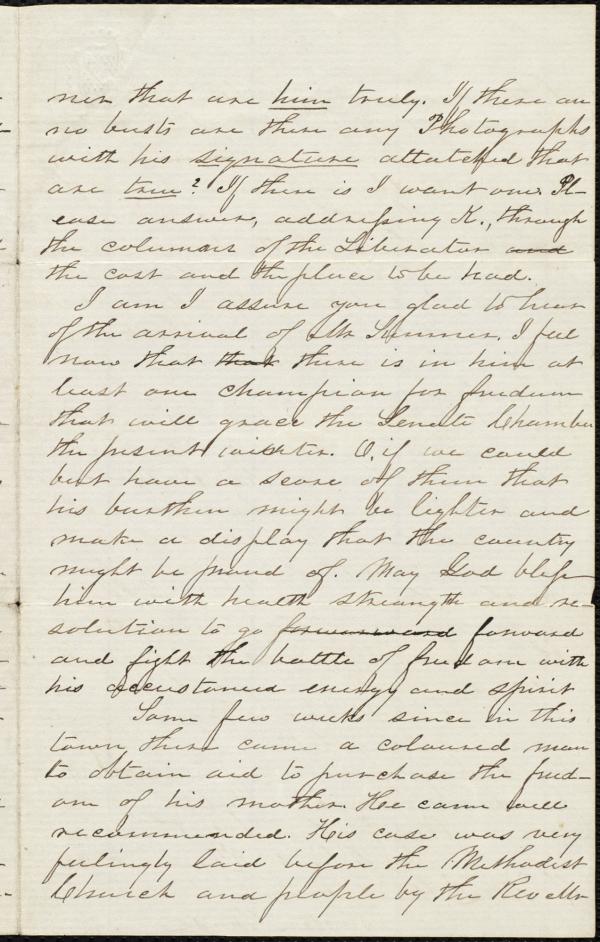 ner that are him truly. If there are
no busts are there any Photographs
with his signature attatched that
are true? If there is I want one. Pl-
ease answer, addressing K., through
the columns of the Liberator and
the cost and the place to be had.
I am I assure you glad to hear
of the arrival of Mr Sumner. I feel
now that that there is in him at
least one champion for freedom
that will grace the Senate Chamber
the present winter. O, if we could
but have a score of them that
his burthen might be lighter and
make a display that the country
might be proud of. May God bless
him with health streangth and re-
solution to go forwarward forward
and fight the battle of freedom with
his accustomed energy and spirit
Some few weeks since in this
town, there came a coloured man
to obtain aid to purchase the freed-
om of his mother. He came well
recommended. His case was very
feelingly laid before the Methodist
Church and people by the Rev Mr